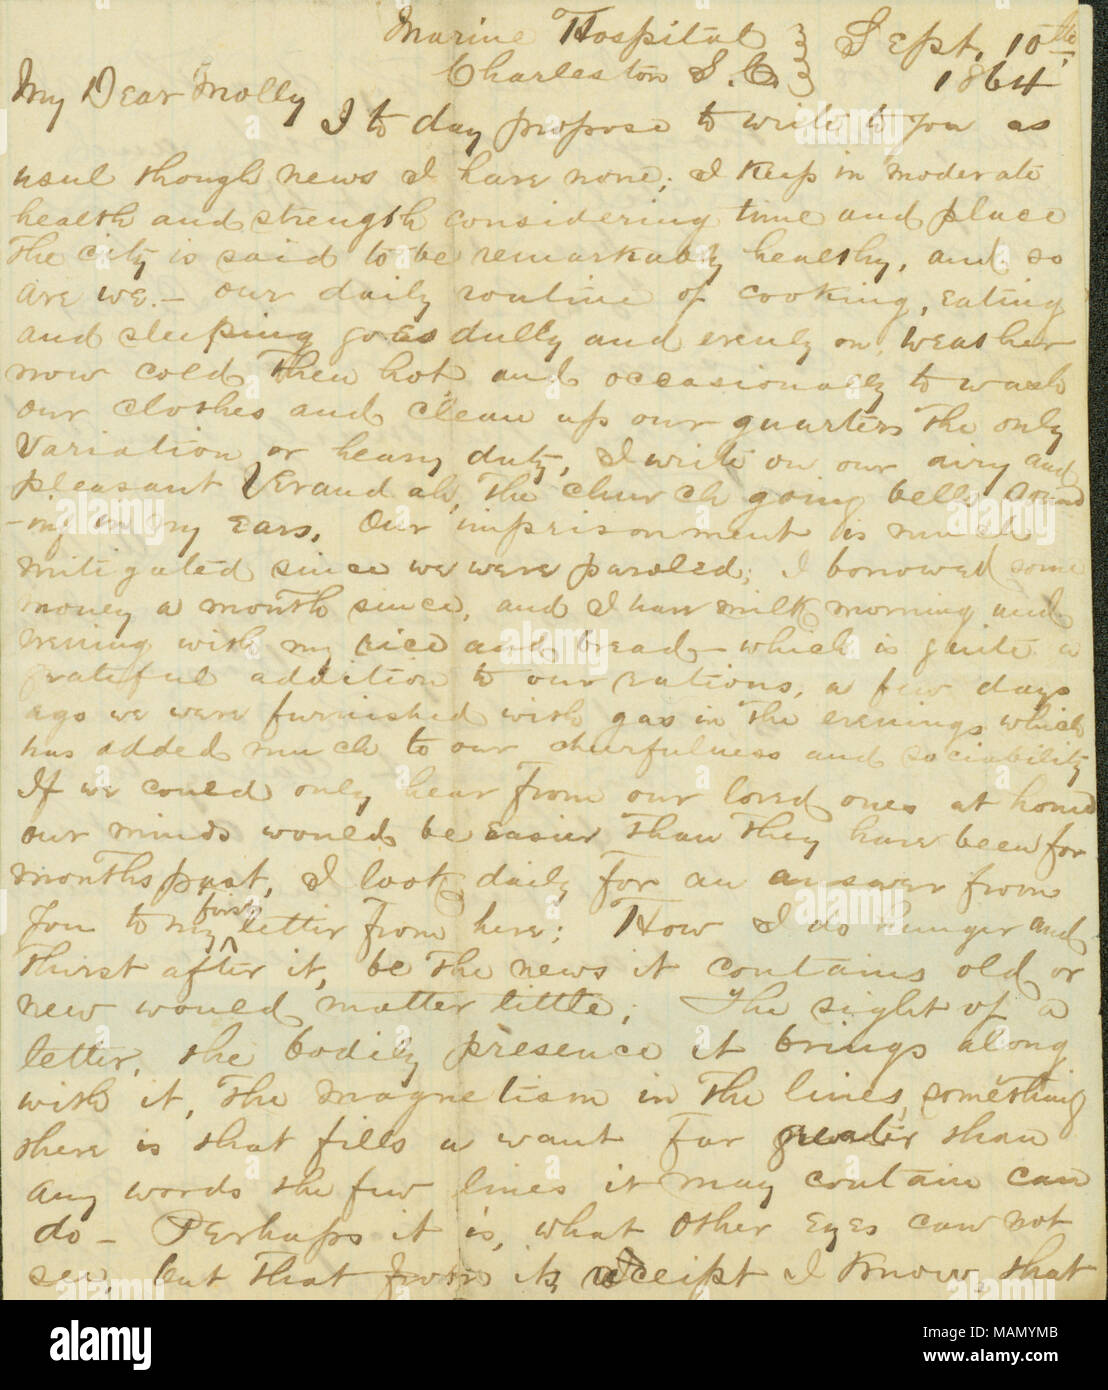 Marine Hospital } Sept. 10th
Charleston S. C. } 1864
My Dear Molly
I to day propose to write to you as
usul though news I have none; I keep in moderate
health and strength considering time and place
The city is said to be remarkably healthy, and so
are we. – our daily routine of cooking, eating
and sleeping goes dully and evenly on, weather
now cold then hot and occasionally to wash
our clothes and clean up our quarters the only
variation or heavy duty, I write on our airy and
pleasant Verandah, The church going bells sound
-ing in my ears. Our imprisonment is much
mitigated since we were paroled; I borrowed some
money a month since, and I have milk morning and
evening with my rice and bread – which is quite a
grateful addition to our rations, a few days
ago we were furnished with gas in the evenings which
has added much to our cheerfulness and sociability
If we could only hear from our loved ones at home
our minds would be easier than they have been for
months past, I look daily for an answer from
you to my first letter from here; How I do hunger and
thirst after it, be the news it contains old or
new would matter little; The sight of a
letter, the bodily presence it brings along
with it, The magnetism in the lines, something
there is that fills a want far greater than
any words the few lines it may contain can
do – Perhaps it is, what other eyes can not
see, but that from its receipt I know, that
alamy
Image ID: MAMYMB
www.alamy.com